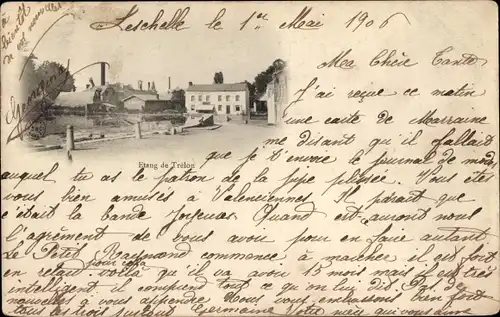 à
bientôt
de vos nouvelles
Georges
Leschelle le 1er Mai 1906
Ma Chère Tante
J'ai reçue ce matin
une carte de Marraine
me disant qu'il fallait
que je t'envoie le journal de mode
Etang de Trélon
auquel tu as le patron de la jupe plissée. Vous êtes
vous bien amusés à Valenciennes. Il parait que
c'était la bande Joyeuse. Quand est-ce auront nous
l'agrément de vous avoir pour en faire autant.
Le Petit Raymond commence à marcher il est fort
en retard pour cela voilà qu'il va avoir 15 mois mais il est très
intelligent il comprend tout ce qu'on lui dit. Pas de
nouvelles à vous apprendre. Nous vous embrassons bien fort
tous les trois Germaine votre nièce qui vous aime